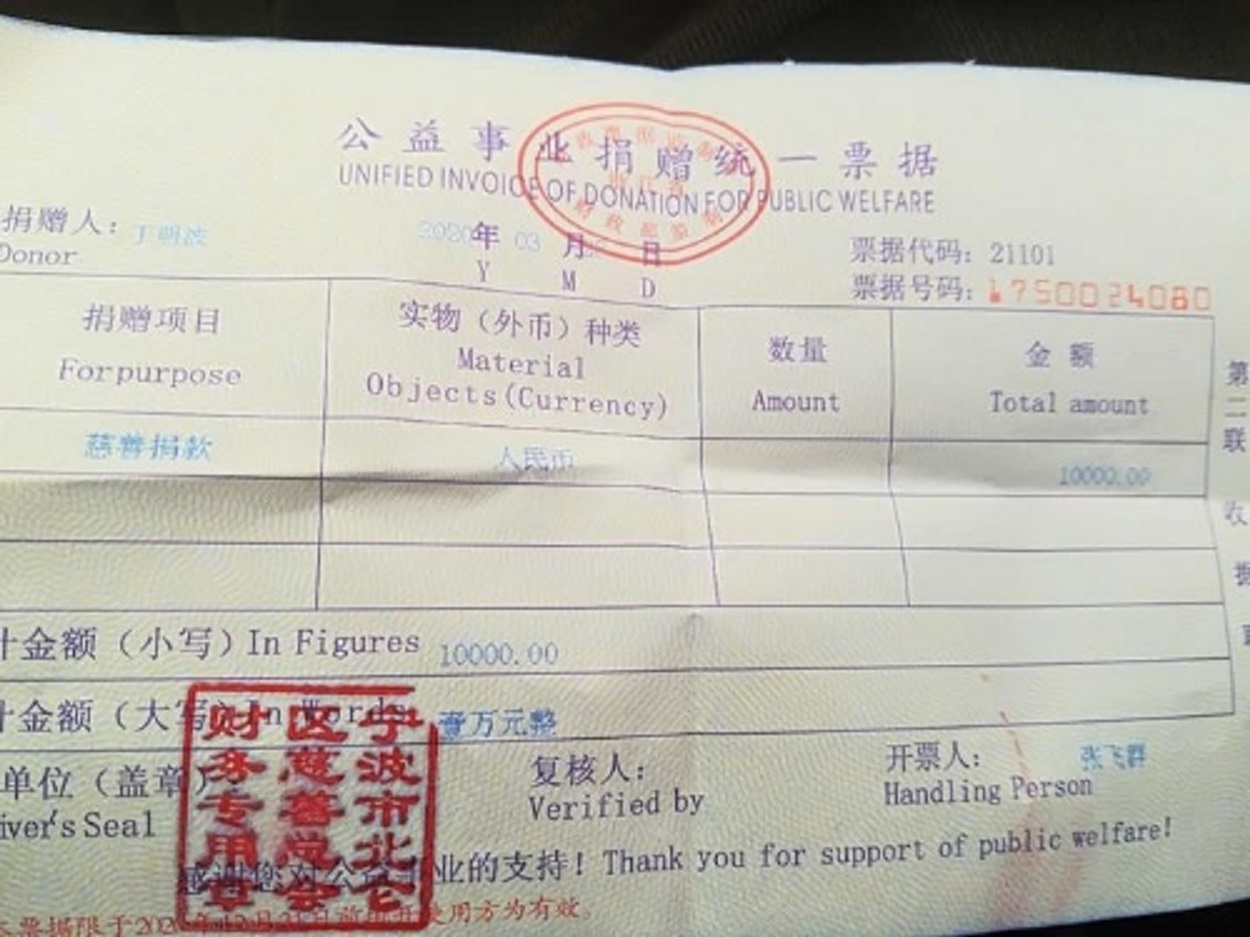 公益事业捐赠统一票据
UNIFIED INVOICE OF DONATION FOR PUBLIC WELFARE
捐赠人：丁明波 2020年 03 月 日 票据代码：21101
Donor Y M D 票据号码：1750024080
捐赠项目 实物（外币）种类 数量 金额
For purpose Material Objects(Currency) Amount Total amount
慈善捐款 人民币 10000.00
计金额（小写）In Figures 10000.00
计金额（大写）In Words 壹万元整
单位（盖章） 复核人： 开票人：张飞群
iver's Seal Verified by Handling Person
宁波市北仑
区慈善总会
财务专用章
感谢您对公益事业的支持！Thank you for support of public welfare!
本票据限于202 年12月31日前 开使用方为有效。
第二联
收据